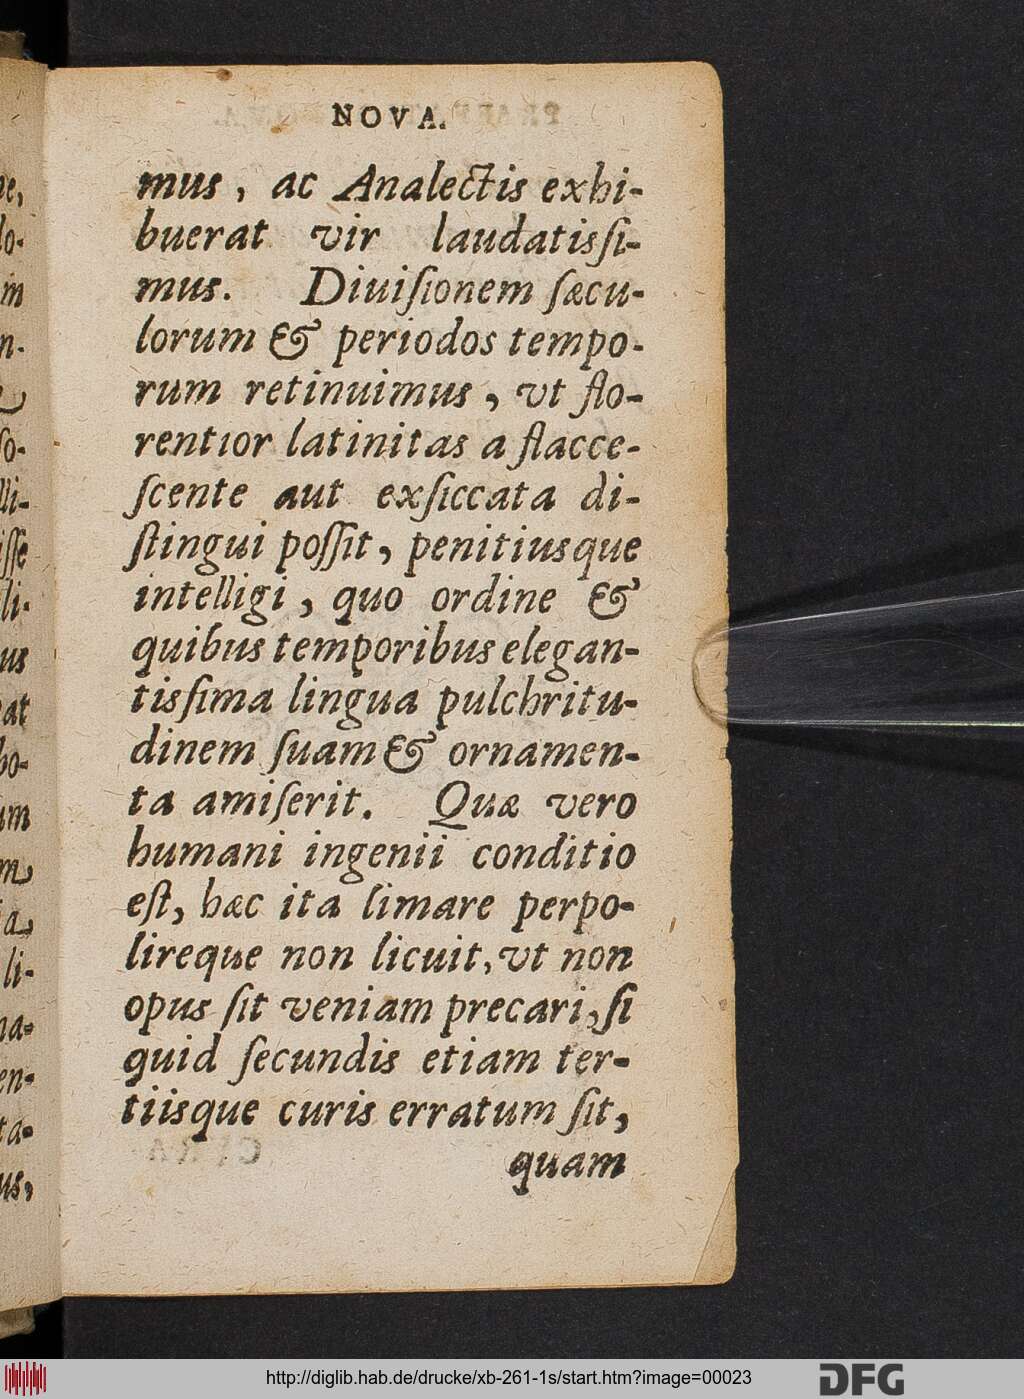 NOVA.
mus, ac Analectis exhi-
buerat vir laudatisſi-
mus. Diuiſionem ſæcu-
lorum & periodos tempo-
rum retinuimus, vt flo-
rentior latinitas a flacce-
ſcente aut exſiccata di-
ſtingui poſſit, penitiusque
intelligi, quo ordine &
quibus temporibus elegan-
tisſima lingua pulchritu-
dinem ſuam & ornamen-
ta amiſerit. Quæ vero
humani ingenii conditio
eſt, hæc ita limare perpo-
lireque non licuit, vt non
opus ſit veniam precari, ſi
quid ſecundis etiam ter-
tiisque curis erratum ſit,
quam
http://diglib.hab.de/drucke/xb-261-1s/start.htm?image=00023
DFG